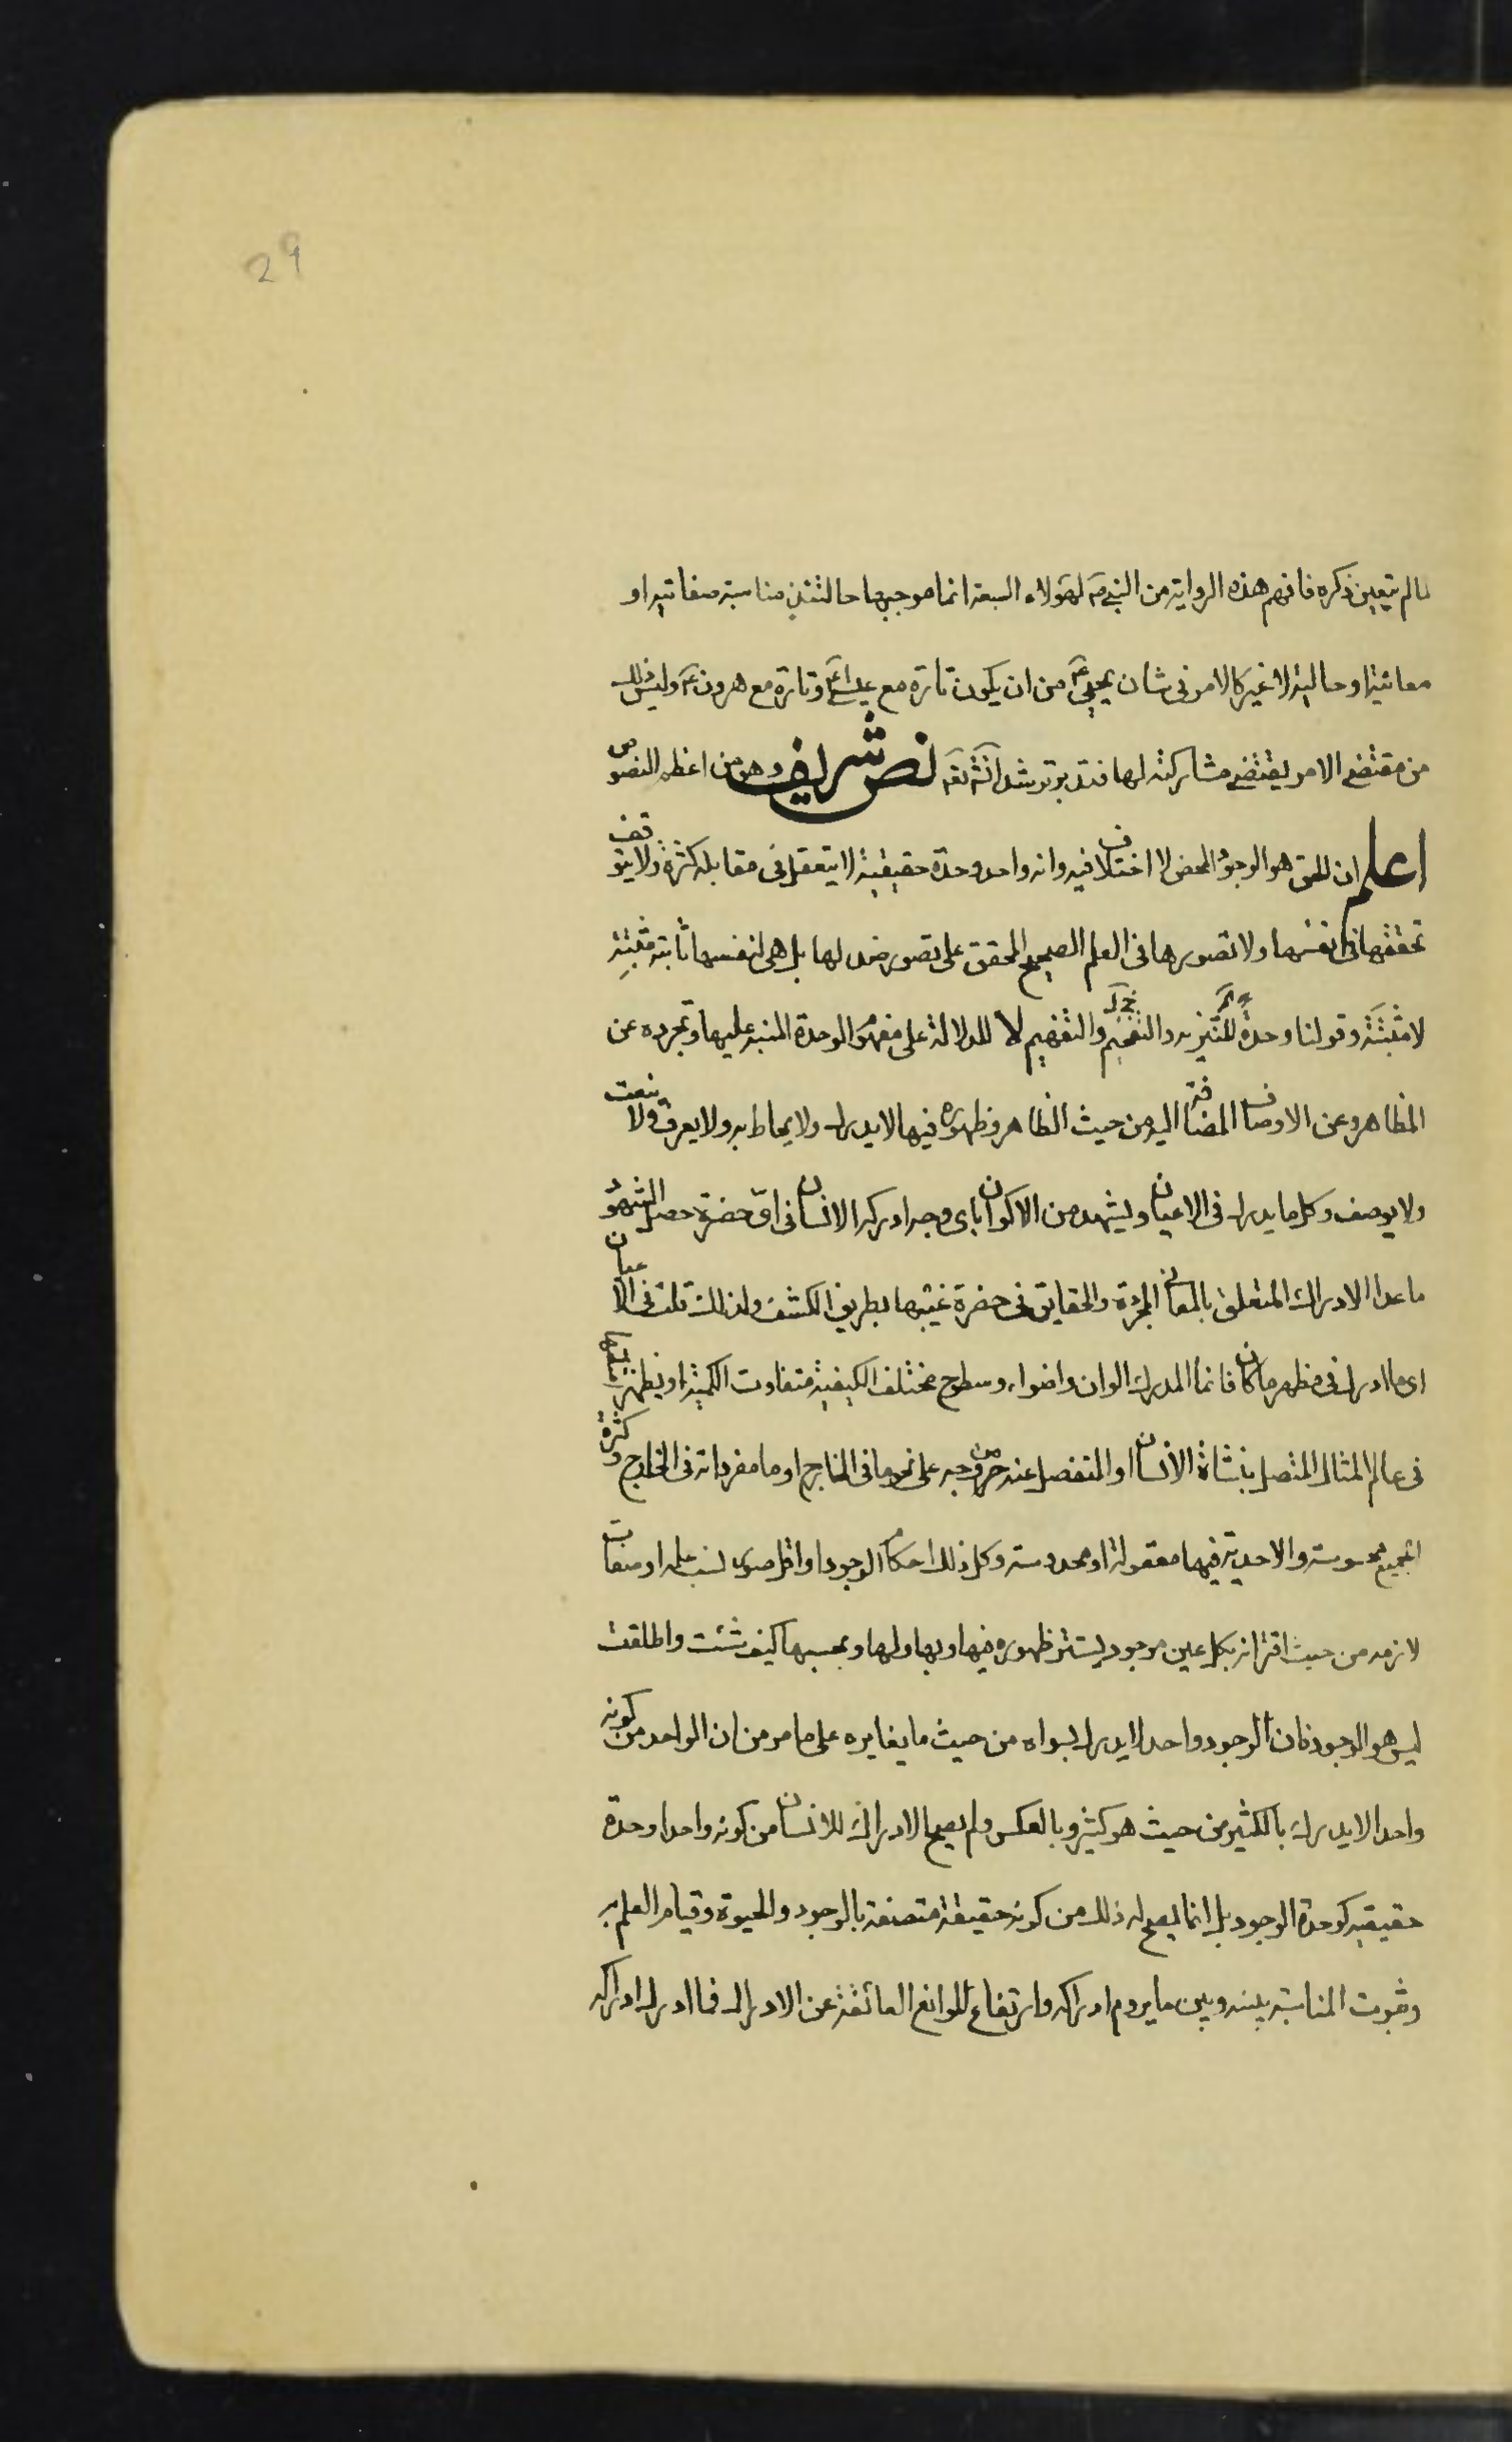 29
لما لم يتعين ذكره فافهم هذه الرواية من النبي صم لهؤلاء السبعة انما موجبها حالتئذ مناسبة صفاتية او
معانية او حالية لا غير كالامر فى شان يحيى عم من ان يكون تارة مع عيسى عم وتارة مع هرون عم وليس ذلك
من مقتضى الامر يقتضى مشاركته لها فتدبر ترشد انشا تعه نص شريف وهو من اعظم النصوص
اعلم ان الحق هو الوجود المحض لا اختلاف فيه وانه واحد وحدة حقيقية لا يتعقل فى مقابلة كثرة ولا يتوقف
تحققها فى انفسها ولا تصورها فى العلم الصحيح المحقق على تصور ضد لها بل هى لنفسها ثابتة مثبتة
لا مثبتة وقولنا وحدة للتنزيه والتفخيم والتفهيم لا للدلالة على مفهوم الوحدة المنبه عليها وتجرده عن
المظاهر وعن الاوصاف المضافة اليه من حيث الظاهر وظهوره فيها لا يدرك ولا يحاط به ولا يعرف ولا ينعت
ولا يوصف وكل ما يدرك فى الاعيان ويشهد من الاكوان باى وجه ادركه الانسان فى اى حضرة حصل الشهود
ما عدا الادراك المتعلق بالمعانى المجردة والحقايق فى حضرة غيبها بطريق الكشف ولذلك قلت فى الاعيان
اى ما ادرك فى مظهر ما كان فانما المدرك الوان واضواء وسطوح مختلف الكيفية متفاوت الكمية او يظهر
فى عالم المثال المتصل بنشاة الانسان او المنفصل عنه من وجه على نحو ما فى الخارج او ما مفرداته فى الخارج وكثرة
الجميع محسوسة والاحدية فيها معقولة او محدوسة وكل ذلك احكام الوجود او قل صور نسب علمه او صفات
لازمة من حيث اقترانه بكل عين موجود يستتر ظهوره فيها وبها ولها وبحسبها كيف شئت واطلقت
ليس هو الوجود فان الوجود واحد لا يدرك بسواه من حيث ما يغايره على ما مر من ان الواحد من كونه
واحدا لا يدرك بالكثير من حيث هو كثير وبالعكس ولم يصح الادراك للانسان من كونه واحدا وحدة
حقيقية كوحدة الوجود بل انما يصح له ذلك من كونه حقيقة متصفة بالوجود والحيوة وقيام العلم به
وثبوت المناسبة بينه وبين ما يروم ادراكه وارتفاع الموانع العائقة عن الادراك فما ادرك ادراكه